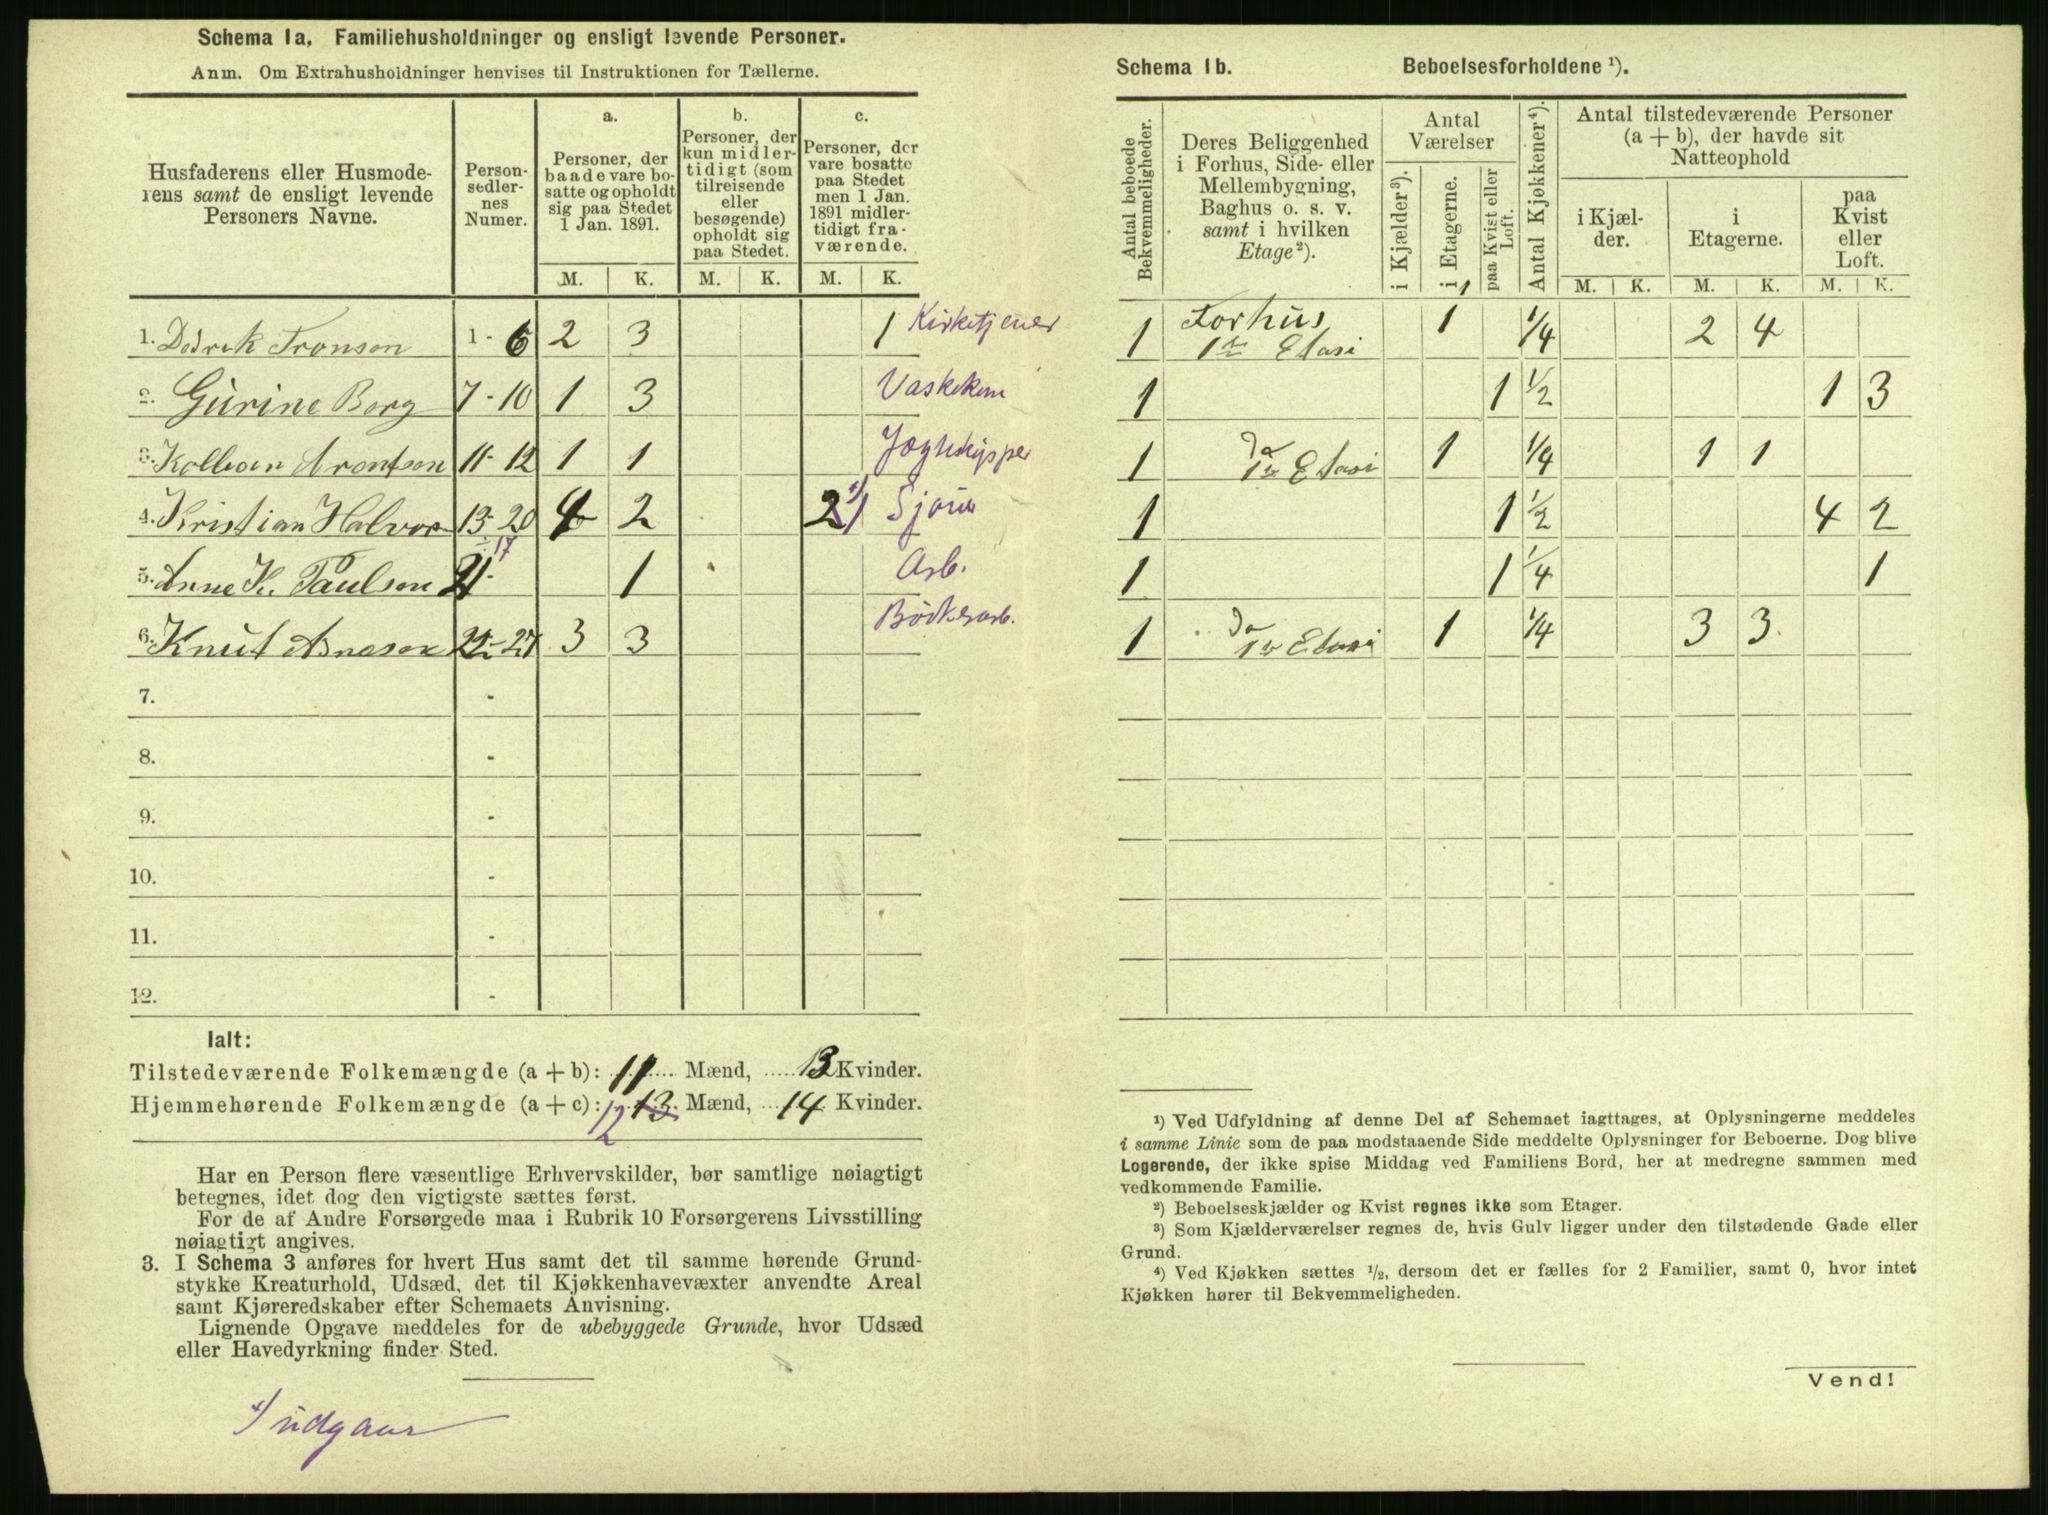 Schema 1a. Familiehusholdninger og ensligt levende Personer.
Anm. Om Extrahusholdninger henvises til Instruktionen for Tællerne.
Husfaderens eller Husmoderens samt de ensligt levende Personers Navne.
Personsedlernes Numer.
a. Personer, der baade vare bosatte og opholdt sig paa Stedet 1 Jan. 1891.
b. Personer, der kun midlertidigt (som tilreisende eller besøgende) opholdt sig paa Stedet.
c. Personer, der vare bosatte paa Stedet men 1 Jan. 1891 midlertidigt fraværende.
M. K. M. K. M. K.
1. Didrik Tronsen 1 - 6 2 3 1 Kirketjener
2. Gurine Borg 7 - 10 1 3 Vaskekone
3. Kolbein Arontsen 11 - 12 1 1 Jagtskipper
4. Kristian Halvor 13 - 20 4 2 2 1 Sjøm
5. Anne K. Paulsen 21 - 1 Arb.
6. Knut Asnesen 22 - 27 3 3 Bødkerarb.
7. -
8. -
9. -
10. -
11. -
12. -
Ialt:
Tilstedeværende Folkemængde (a + b): 11 Mænd, 13 Kvinder.
Hjemmehørende Folkemængde (a + c): 12 13 Mænd, 14 Kvinder.
Har en Person flere væsentlige Erhvervskilder, bør samtlige nøiagtigt
betegnes, idet dog den vigtigste sættes først.
For de af Andre Forsørgede maa i Rubrik 10 Forsørgerens Livsstilling
nøiagtigt angives.
3. I Schema 3 anføres for hvert Hus samt det til samme hørende Grund-
stykke Kreaturhold, Udsæd, det til Kjøkkenhavevæxter anvendte Areal
samt Kjøreredskaber efter Schemaets Anvisning.
Lignende Opgave meddeles for de ubebyggede Grunde, hvor Udsæd
eller Havedyrkning finder Sted.
*) udgaar
Schema 1b. Beboelsesforholdene ¹).
Antal beboede Bekvemmeligheder.
Deres Beliggenhed i Forhus, Side- eller Mellembygning, Baghus o. s. v. samt i hvilken Etage ²).
Antal Værelser
i Kjælder ³).
i Etagerne.
paa Kvist eller Loft.
Antal Kjøkkener ⁴).
Antal tilstedeværende Personer (a + b), der havde sit Natteophold
i Kjælder.
i Etagerne.
paa Kvist eller Loft.
M. K. M. K. M. K.
1 Forhus 1ste Etasi 1 1/4 2 4
1 1 1/2 1 3
1 Do 1ste Etasi 1 1/4 1 1
1 1 1/2 4 2
1 1 1/4 1
1 Do 1ste Etasi 1 1/4 3 3
¹) Ved Udfyldning af denne Del af Schemaet iagttages, at Oplysningerne meddeles
i samme Linie som de paa modstaaende Side meddelte Oplysninger for Beboerne. Dog blive
Logerende, der ikke spise Middag ved Familiens Bord, her at medregne sammen med
vedkommende Familie.
²) Beboelseskjælder og Kvist regnes ikke som Etager.
³) Som Kjælderværelser regnes de, hvis Gulv ligger under den tilstødende Gade eller
Grund.
⁴) Ved Kjøkken sættes ½, dersom det er fælles for 2 Familier, samt 0, hvor intet
Kjøkken hører til Bekvemmeligheden.
Vend!